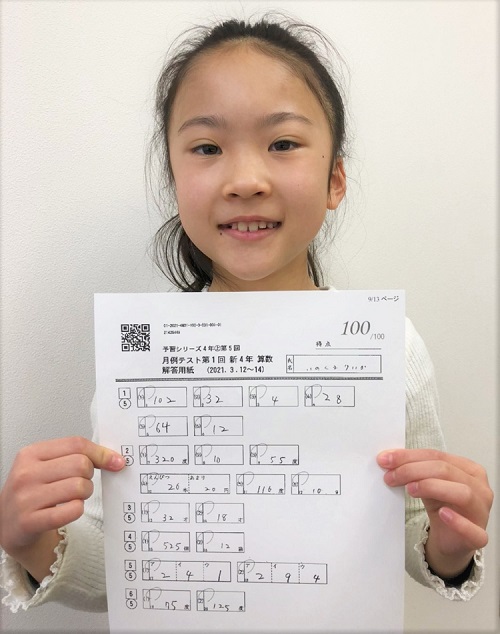 9/13 ページ
予習シリーズ4年㊤第5回
月例テスト第1回 新4年 算数
解答用紙 (2021. 3.12〜14)
得点 100 /100
氏名
1 ⑤ (1) 102 (2) 32 (3) 4 (4) 28
(5) 64 (6) 12
2 ⑤ (1) 320度 (2) 10 (3) 55度
えんぴつ 26本 あまり 20円 116度
3 ⑤ (1) 32 (2) 18
4 ⑤ (1) 525 (2) 12
5 ⑤ (1) ア 2 イ 4 ウ 1 (2) ア 2 イ 9 ウ 4
6 ⑤ (1) 75度 (2) 125度